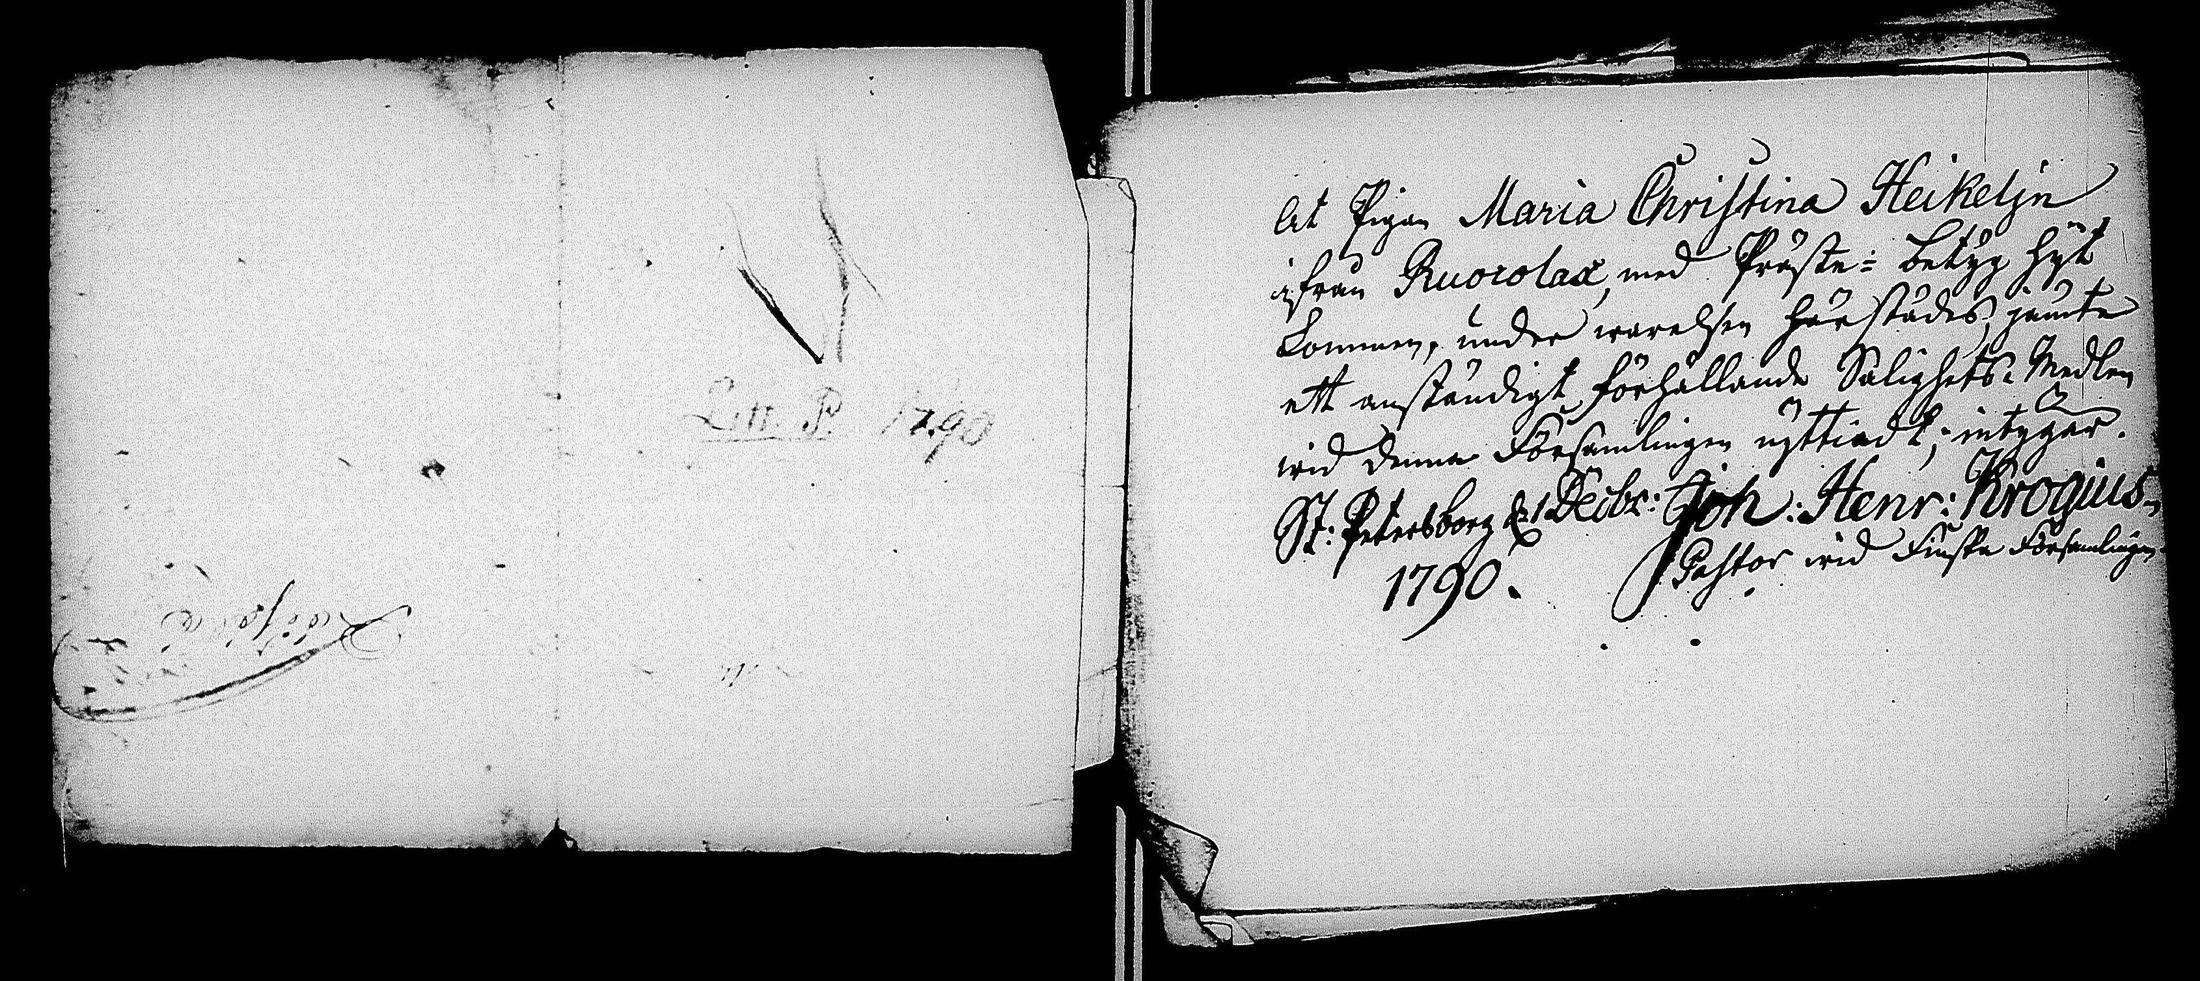 Litt. P. 1790
At Pigan Maria Christina Heikeljn
ifrån Ruorolax, med Präste= betyg hijt
kommen, under warelsen härstädes, jämte
ett anständigt förhållande Salighets-Medlen
wid denna Församlingen nyttiadt; intygar.
St: Petersborg d. 1 Decibr: Joh: Henr: Krogius
1790. Pastor wid Finska Församlingen